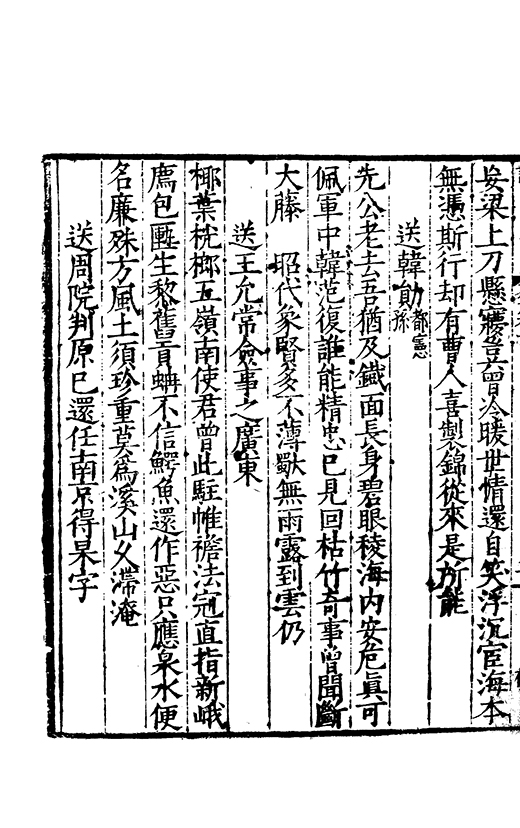 妄梁上刀懸寢豈曾冷暖世情還自笑浮沉宦海本
無憑斯行却有曹人喜製錦從來是所能
送韓勛都憲孫
先公老去吾猶及鐵面長身碧眼稜海内安危真可
佩軍中韓范復誰能精忠已見回枯竹奇事曾聞斷
大藤昭代象賢多不薄歇無雨露到雲仍
送王允常僉事之廣東
椰葉桄榔五嶺南使君曾此駐帷襜法冠直指新峨
廌包匭生黎舊貢蚺不信鰐魚還作惡只應泉水便
名廉殊方風土須珍重莫爲溪山久滯淹
送周院判原已還任南京得杲字